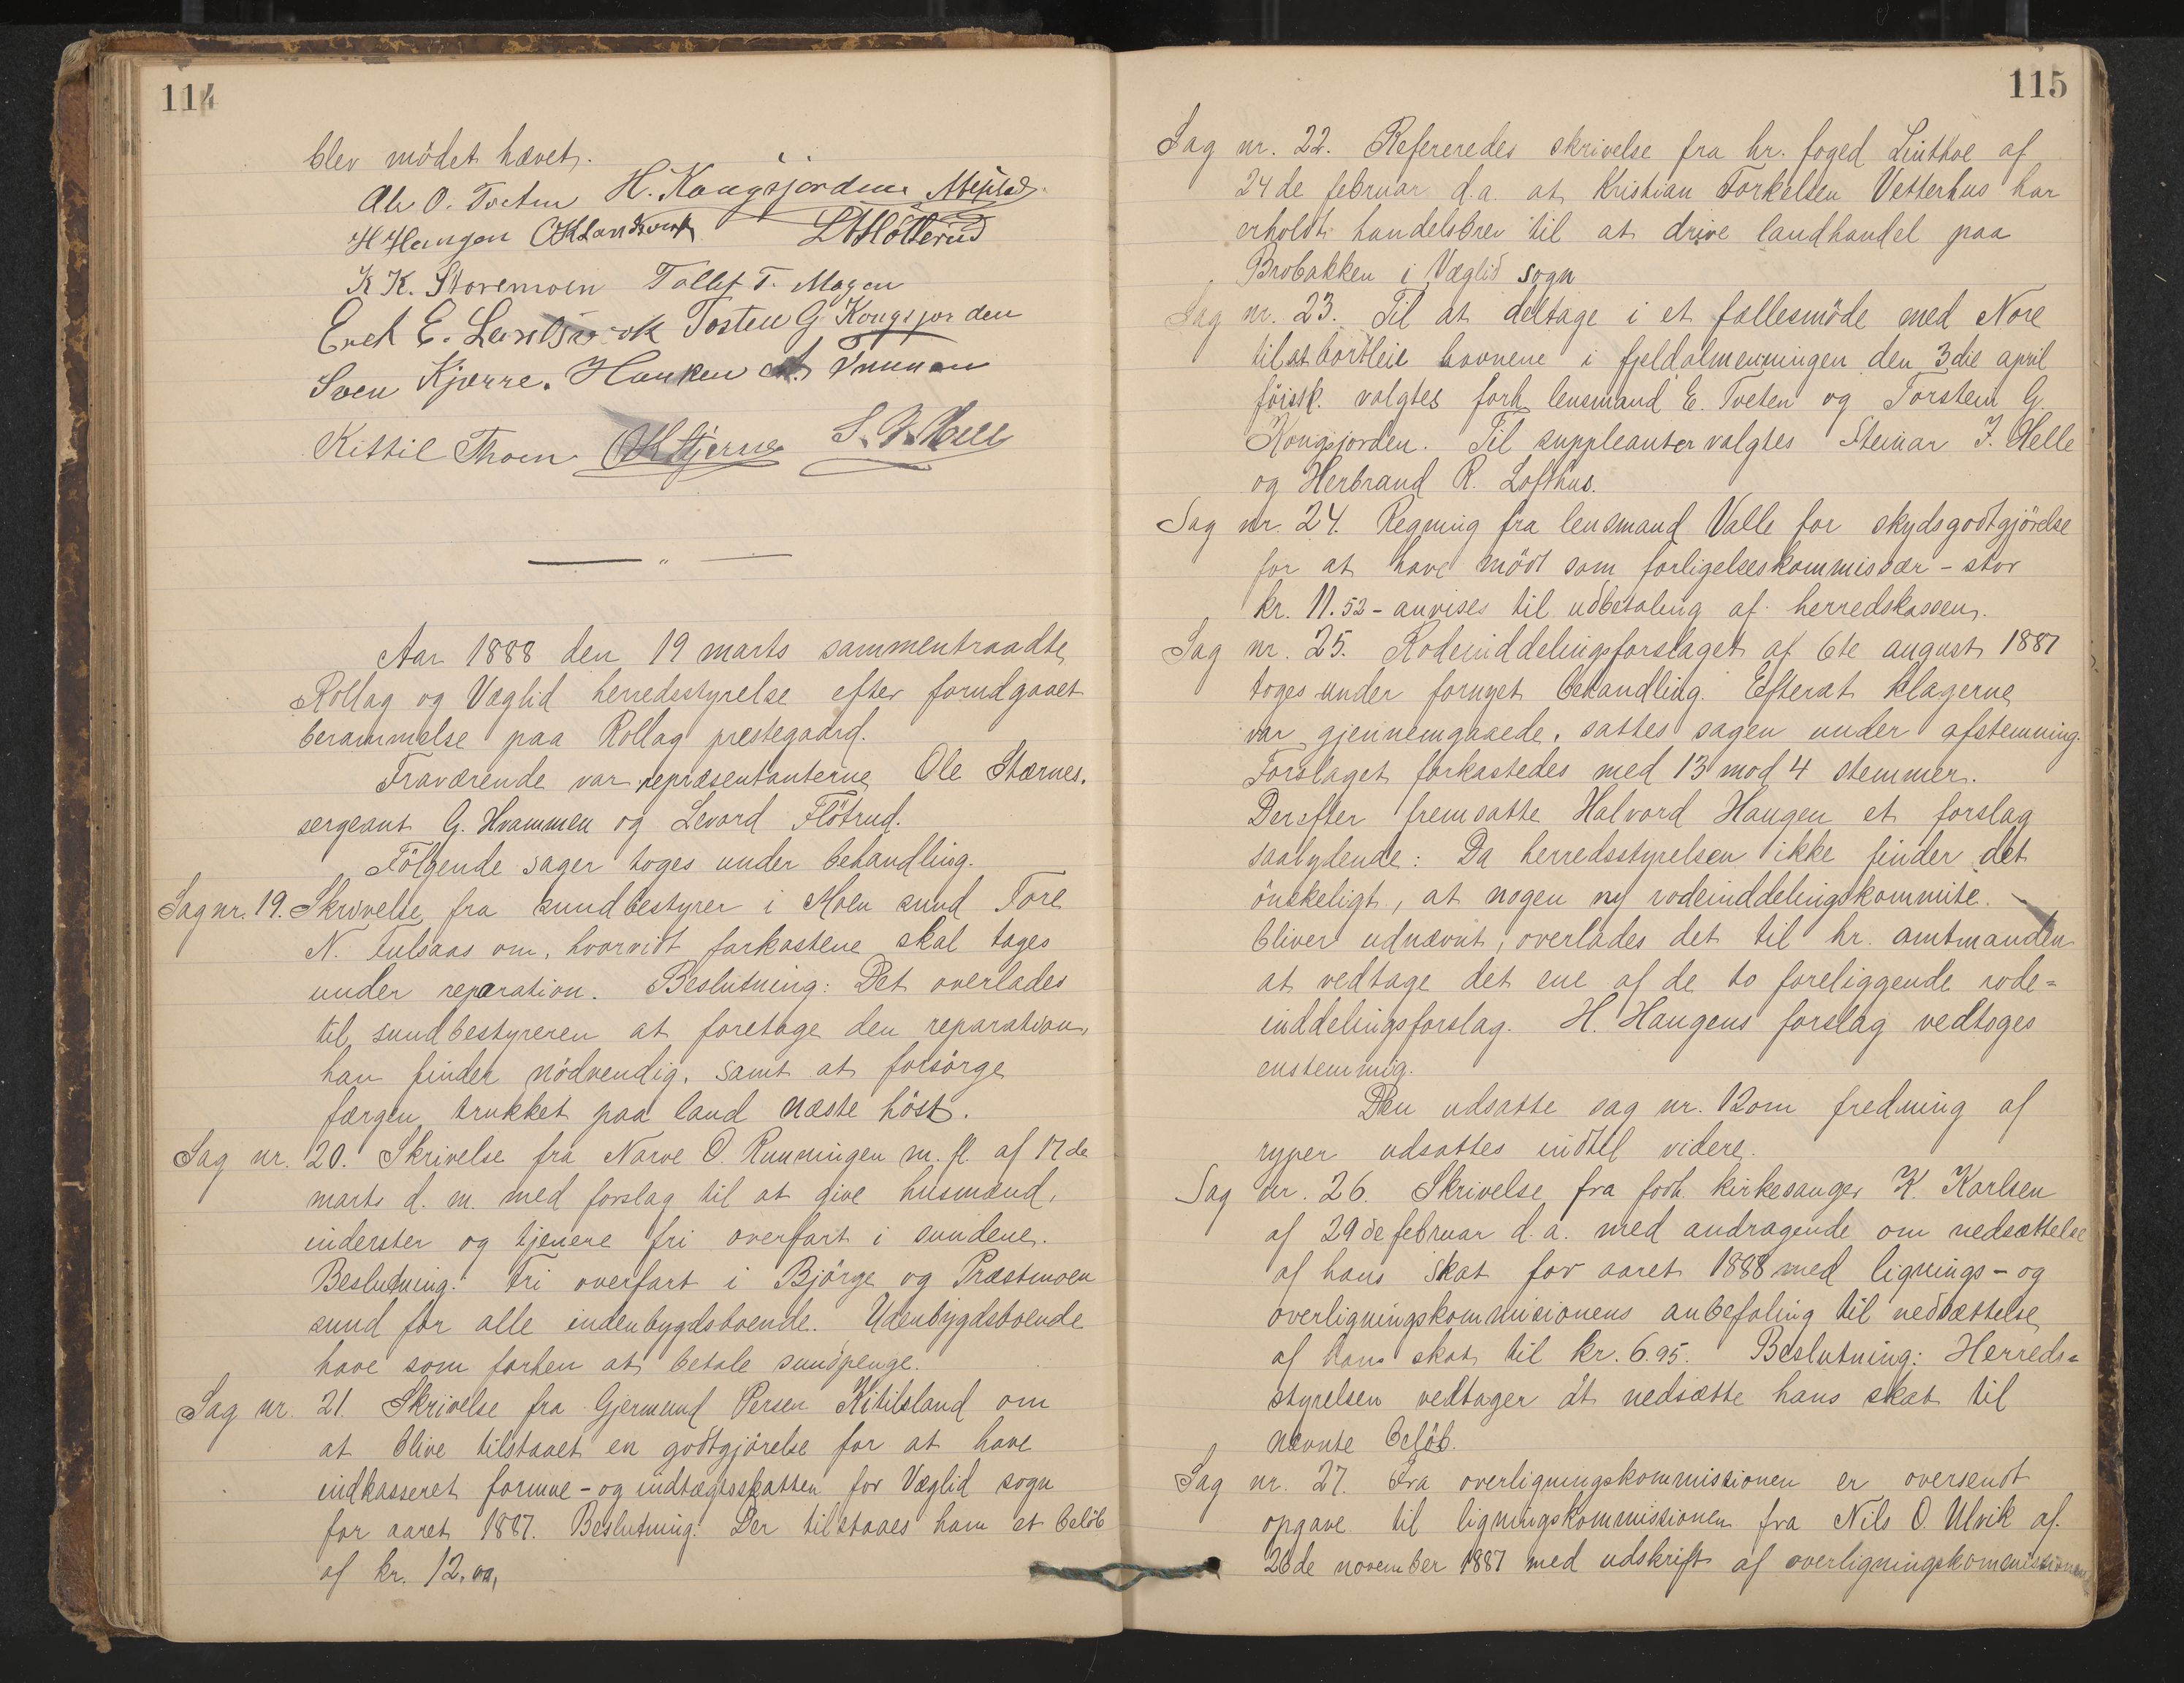 114
blev mödet hævet.
Ole O. Tveten H. Kongsjorden
H Haugen
K K. Storemoen Tollef T. Mogen
E. Tosten G Kongsjorden
Sven Kjærre. Hauken
Kittil Thoen
Aar 1888 den 19 marts sammentraadte
Rollag og Væglid herredsstyrelse efter forudgaaet
berammelse paa Rollag prestegaard.
Fraværende var repræsentanterne Ole Stærnes,
sergeant G. Hvammen og Levord Flötrud.
Fölgende sager toges under behandling.
Sag nr. 19. Skrivelse fra sundbestyrer i Moen sund Tore
N. Fulsaas om, hvorvidt farkostene skal tages
under reparation. Beslutning: Det overlades
til sundbestyreren at foretage den reparation,
han finder nödvendig, samt at forsörge
færgen trukket paa land næste höst.
Sag nr. 20. Skrivelse fra Narve O. Runningen m. fl. af 17de
marts d. m. med forslag til at give husmænd,
inderster og tjenere fri overfart i sundene.
Beslutning: Fri overfart i Björge og Præstmoen
sund for alle indenbygdsboende. Udenbygdsboende
have som förhen at betale sundpenge.
Sag nr. 21. Skrivelse fra Gjermund Persen Kitilsland om
at blive tilstaaet en godtgjörelse for at have
indkasseret formue- og indtægtsskatten for Væglid sogn
for aaret 1887. Beslutning: Der tilstaaes ham et belöb
af kr. 12.00,
115
Sag nr. 22. Refereredes skrivelse fra hr. foged Linthoe af
24de februar d.a. at Kristian Torkelsen Vetterhus har
erholdt handelsbrev til at drive landhandel paa
Brobakken i Væglid sogn
Sag nr. 23. Til at deltage i et fællesmöde med Nore
til at bortleie havnene i fjeldalmenningen den 3die april
förstk. valgtes forh. lensmand E. Tveten og Torstein G.
Kongsjorden. Til suppleanter valgtes Steinar J. Helle
og Herbrand R. Lofthus.
Sag nr. 24. Regning fra lensmand Valle for skydsgodtgjörelse
for at have mödt som forligelseskommissær - stor
kr. 11.52 - anvises til udbetaling af herredskassen.
Sag nr. 25. Rodeinddelingsforslaget af 6te august 1887
toges under fornyet behandling. Efterat klagerne
var gjennemgaaede, sattes sagen under afstemning.
Forslaget forkastedes med 13 mod 4 stemmer.
Derefter fremsatte Halvord Haugen et forslag
saalydende: Da herredsstyrelsen ikke finder det
önskeligt, at nogen ny rodeinddelingskommite
bliver udnævnt, overlades det til hr. amtmanden
at vedtage det ene af de to foreliggende rode=
inddelingsforslag. H. Haugens forslag vedtoges
enstemmig.
Den udsatte sag nr. 12 om fredning af
ryper udsattes indtil videre.
Sag nr. 26. Skrivelse fra forh. kirkesanger K. Karlsen
af 29de februar d.a. med andragende om nedsættelse
af hans skat for aaret 1888 med lignings- og
overligningskommissionens anbefaling til nedsættelse
af hans skat til kr. 6.95. Beslutning: Herreds=
styrelsen vedtager at nedsætte hans skat til
nævnte belöb.
Sag nr. 27. Fra overligningskommissionen er oversendt
opgave til ligningskommissionen fra Nils O. Ulvik af
26de november 1887 med udskrift af overligningskommissionens